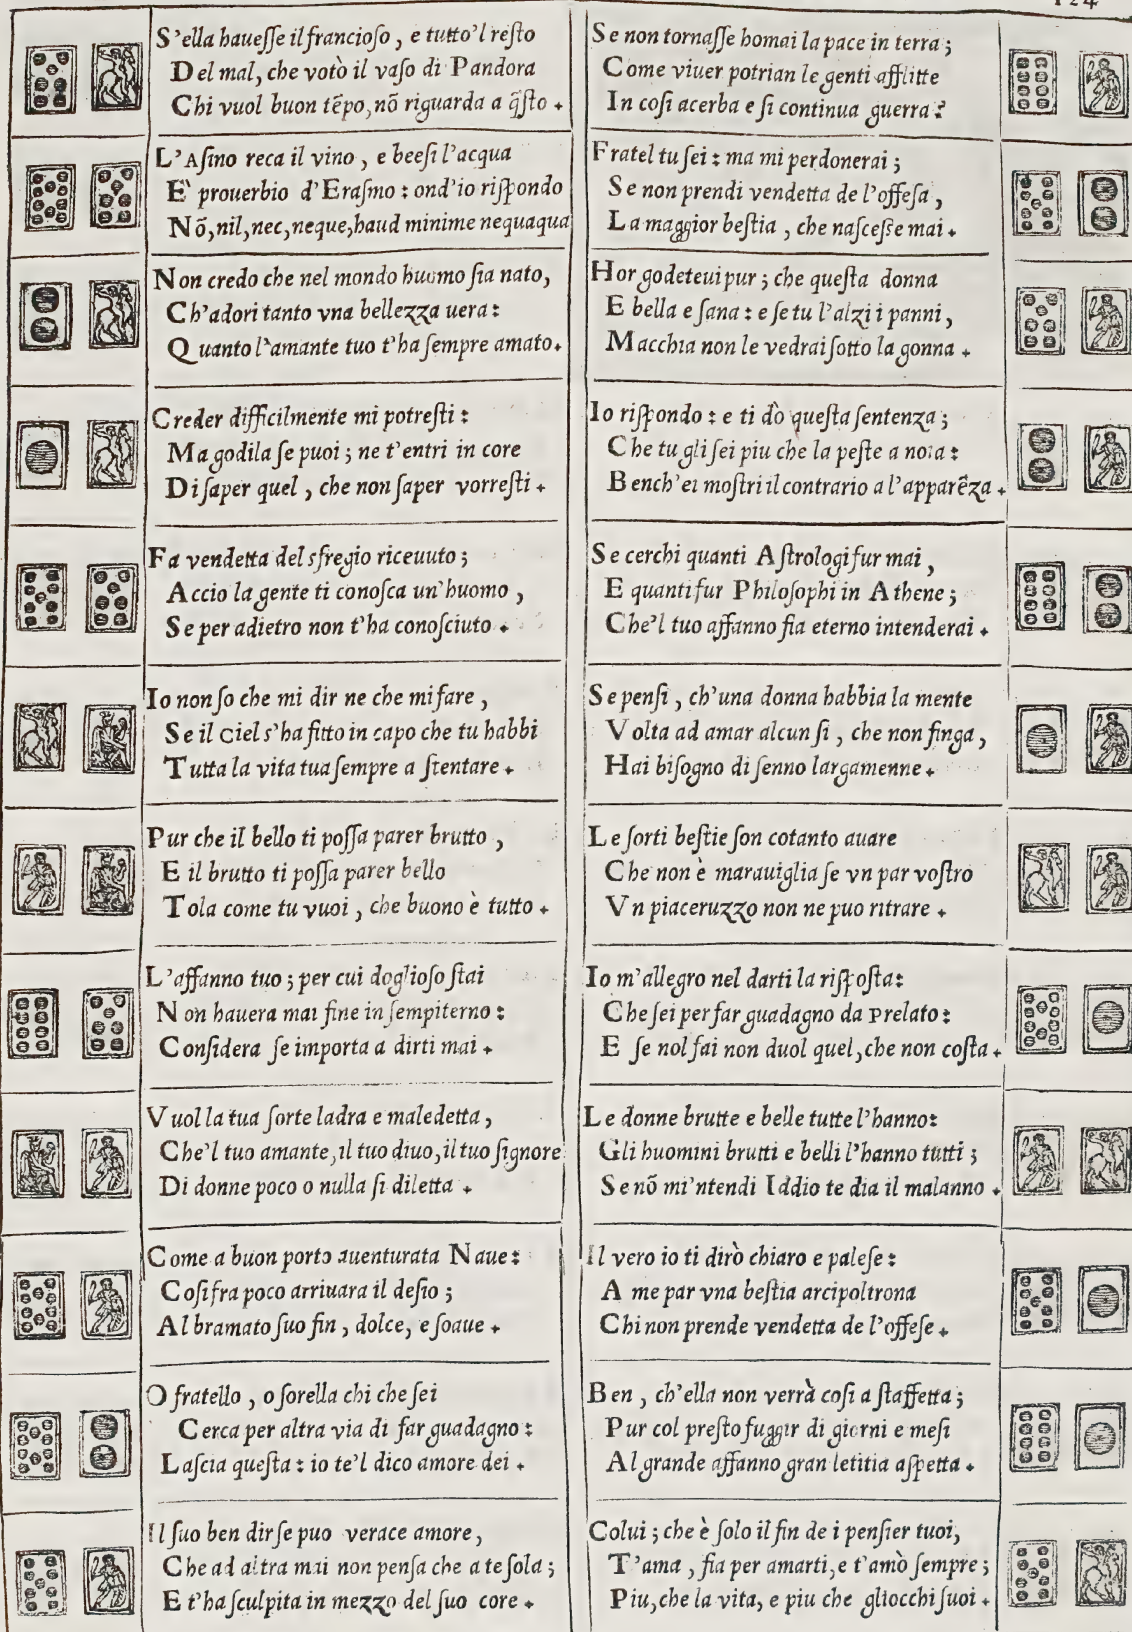 S'ella haueſſe il francioſo, e tutto'l reſto
Del mal, che votò il vaſo di Pandora
Chi vuol buon tẽpo, nõ riguarda a q̃ſto.
L'Aſino reca il vino, e beeſi l'acqua
E' prouerbio d'Eraſmo: ond'io riſpondo
Nõ, nil, nec, neque, haud minime nequaqua
Non credo che nel mondo huomo ſia nato,
Ch'adori tanto vna bellezza uera:
Quanto l'amante tuo t'ha ſempre amato.
Creder difficilmente mi potreſti:
Ma godila ſe puoi; ne t'entri in core
Di ſaper quel, che non ſaper vorreſti.
Fa vendetta del sfregio riceuuto;
Accio la gente ti conoſca un'huomo,
Se per adietro non t'ha conoſciuto.
Io non ſo che mi dir ne che mi fare,
Se il Ciel s'ha fitto in capo che tu habbi
Tutta la vita tua ſempre a ſtentare.
Pur che il bello ti poſſa parer brutto,
E il brutto ti poſſa parer bello
Tola come tu vuoi, che buono è tutto.
L'affanno tuo; per cui doglioſo ſtai
Non hauera mai fine in ſempiterno:
Conſidera ſe importa a dirti mai.
Vuol la tua ſorte ladra e maledetta,
Che'l tuo amante, il tuo diuo, il tuo ſignore
Di donne poco o nulla ſi diletta.
Come a buon porto auenturata Naue:
Coſi fra poco arriuara il deſio;
Al bramato ſuo fin, dolce, e ſoaue.
O fratello, o ſorella chi che ſei
Cerca per altra via di far guadagno:
Laſcia queſta: io te'l dico amore dei.
Il ſuo ben dirſe puo verace amore,
Che ad altra mai non penſa che a te ſola;
E t'ha ſculpita in mezzo del ſuo core.
124
Se non tornaſſe homai la pace in terra;
Come viuer potrian le genti afflitte
In coſi acerba e ſi continua guerra?
Fratel tu ſei: ma mi perdonerai;
Se non prendi vendetta de l'offeſa,
La maggior beſtia, che naſceſſe mai.
Hor godeteui pur; che queſta donna
E bella e ſana: e ſe tu l'alzi i panni,
Macchia non le vedrai ſotto la gonna.
Io riſpondo: e ti dò queſta ſentenza;
Che tu gli ſei piu che la peſte a noia:
Bench'ei moſtri il contrario a l'apparẽza.
Se cerchi quanti Aſtrologi fur mai,
E quanti fur Philoſophi in Athene;
Che'l tuo affanno fia eterno intenderai.
Se penſi, ch'una donna habbia la mente
Volta ad amar alcun ſi, che non finga,
Hai biſogno di ſenno largamenne.
Le ſorti beſtie ſon cotanto auare
Che non è marauiglia ſe vn par voſtro
Vn piaceruzzo non ne puo ritrare.
Io m'allegro nel darti la riſpoſta:
Che ſei per far guadagno da Prelato:
E ſe nol fai non duol quel, che non coſta.
Le donne brutte e belle tutte l'hanno:
Gli huomini brutti e belli l'hanno tutti;
Se nõ mi'ntendi Iddio te dia il malanno.
Il vero io ti dirò chiaro e paleſe:
A me par vna beſtia arcipoltrona
Chi non prende vendetta de l'offeſe.
Ben, ch'ella non verrà coſi a ſtaffetta;
Pur col preſto fuggir di giorni e meſi
Al grande affanno gran letitia aſpetta.
Colui; che è ſolo il fin de i penſier tuoi,
T'ama, fia per amarti, e t'amò ſempre;
Piu, che la vita, e piu che gliocchi ſuoi.